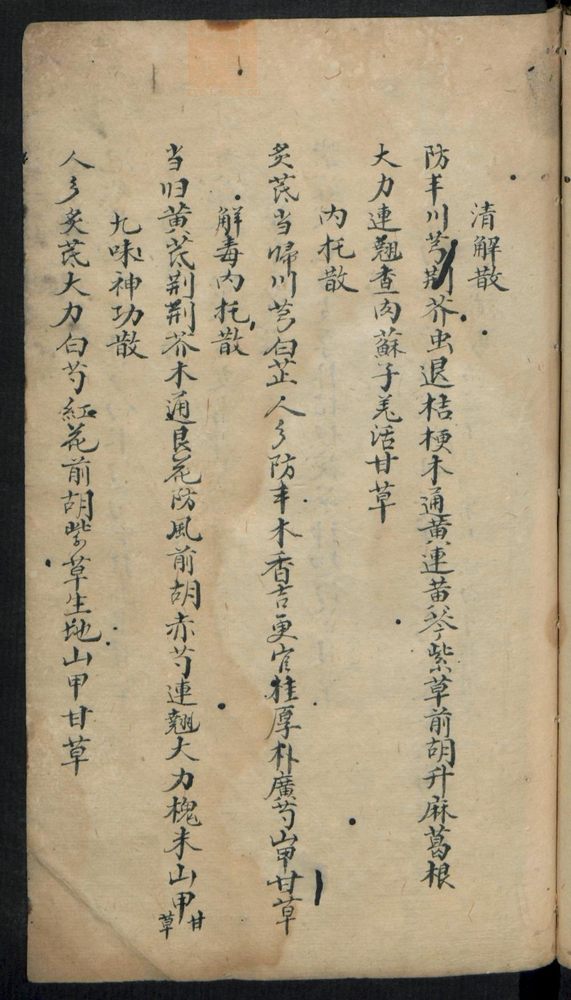 清解散
防丰川芎荆芥虫退桔梗木通黄連黄芩紫草前胡升麻葛根
大力連翹查肉蘇子羌活甘草
内托散
炙芪当归川芎白芷人参防丰木香吉更官桂厚朴廣芍山甲甘草
解毒内托散
当归黄芪荆荆芥木通艮花防風前胡赤芍連翹大力槐米山甲甘草
九味神功散
人参炙芪大力白芍紅花前胡紫草生地山甲甘草